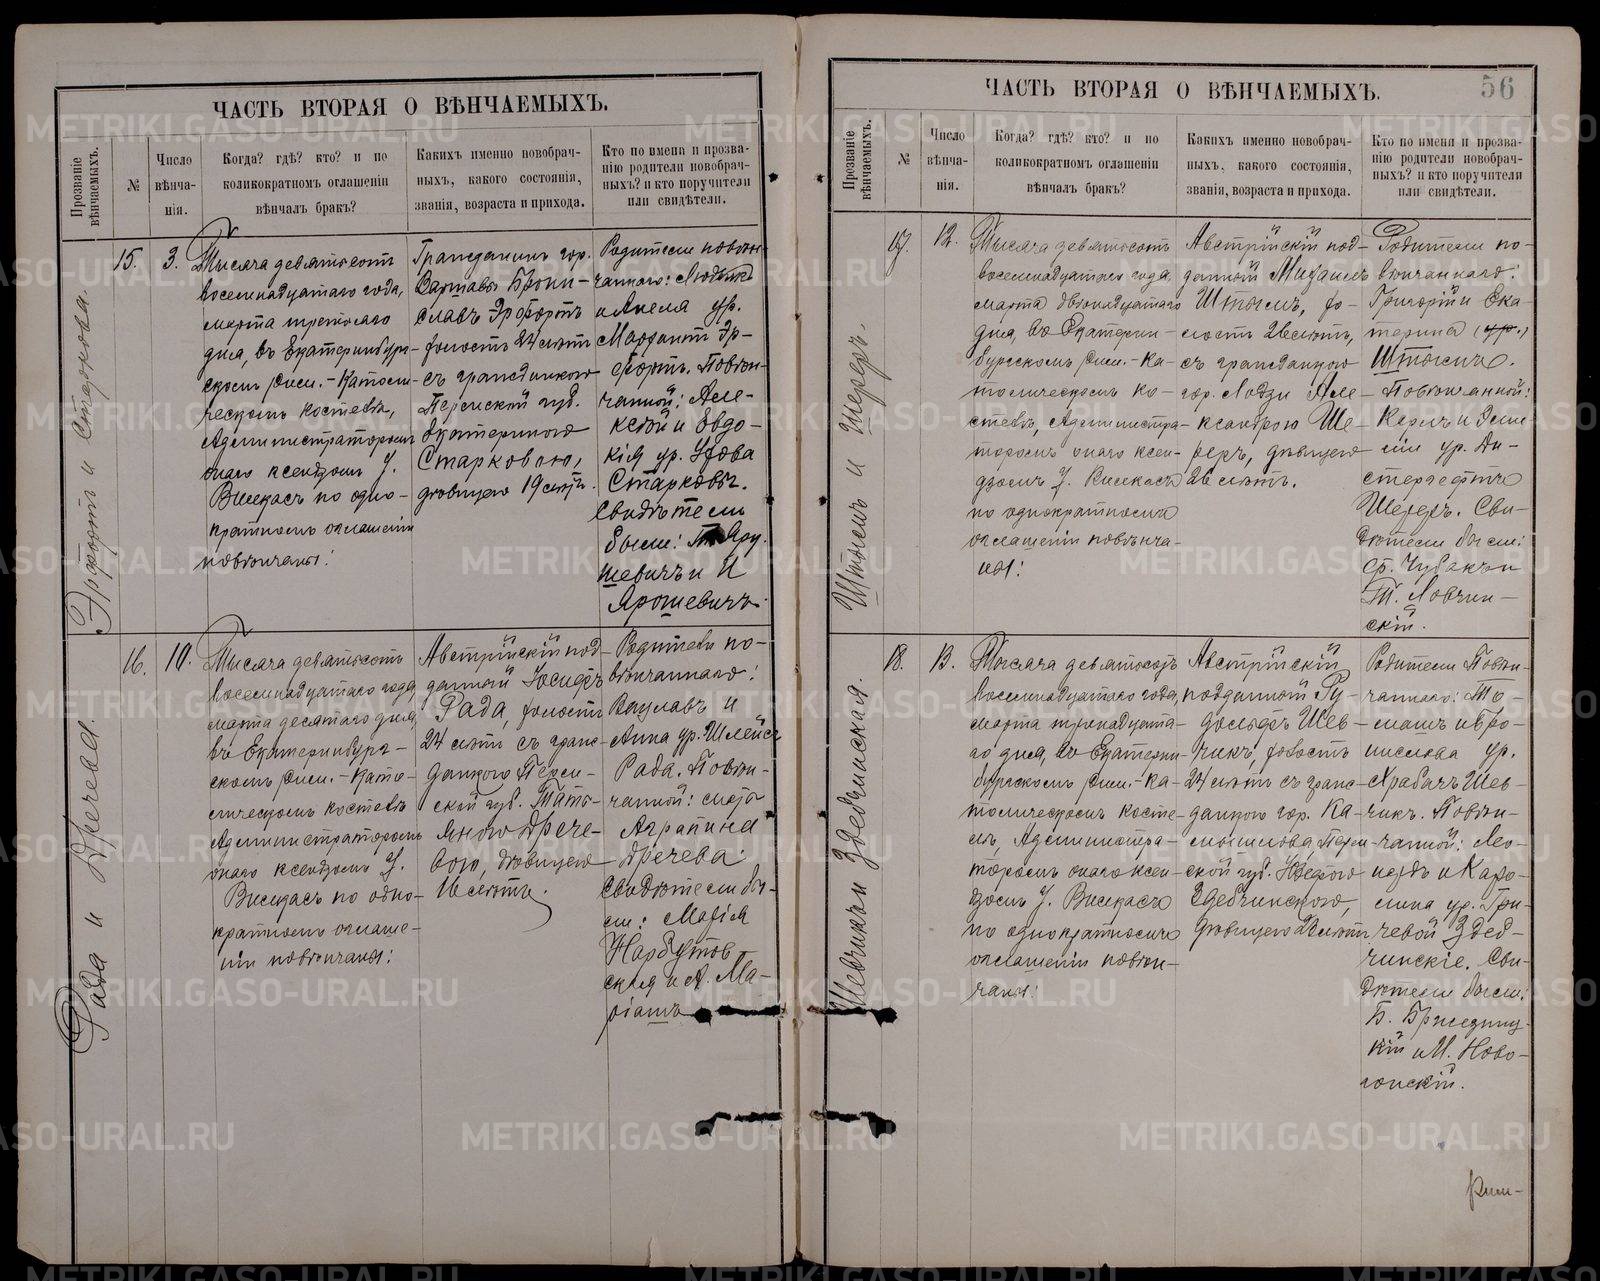 ЧАСТЬ ВТОРАЯ О ВѢНЧАЕМЫХЪ.
Прозваніе вѣнчаемыхъ.
№
Число
вѣнча-
нія.
Когда? гдѣ? кто? и по
коликократномъ оглашеніи
вѣнчалъ бракъ?
Какихъ именно новобрач-
ныхъ, какого состоянія,
званія, возраста и прихода.
Кто по имени и прозва-
нію родители новобрач-
ныхъ? и кто поручители
или свидѣтели.
Эрфортъ и Старкова.
15.
3.
Тысяча девятьсотъ
восемнадцатаго года,
марта третьяго
дня, въ Екатеринбург-
скомъ Рим.-Католи-
ческомъ костелѣ,
Администраторомъ
онаго ксендзомъ
по одно-
кратномъ оглашеніи
повѣнчаны:
Гражданинъ гор.
Варшавы Брони-
славъ Эрфортъ
холостъ 24 лѣтъ
съ гражданкою
Пермской губ.
Екатериною
Старковою,
дѣвицею 19 лѣтъ.
Родители повѣн-
чаннаго:
и Анеля ур.
Эр-
фортъ. Повѣн-
чанной: Але-
ксѣй и Евдо-
кія ур.
Старковы.
Свидѣтели
были:
шевичъ и И
Ярошевичъ.
Рада и Дречева.
16.
10.
Тысяча девятьсотъ
восемнадцатаго года
марта десятаго дня,
въ Екатеринбург-
скомъ Рим.-Като-
лическомъ костелѣ
Администраторомъ
онаго ксендзомъ
по одно-
кратномъ оглаше-
ніи повѣнчаны:
Австрійскій под-
данный Іосифъ
Рада, холостъ
24 лѣтъ съ граж-
данкою Перм-
ской губ. Тать-
яною Дрече-
вою, дѣвицею
18 лѣтъ.
Родители по-
вѣнчаннаго:
Вацлавъ и
Анна ур.
Рада. Повѣн-
чанной: мать
Аграпина
Дречева.
Свидѣтели бы-
ли: Марія
Нарбутов-
ская и А. Ма-
ріашъ
ЧАСТЬ ВТОРАЯ О ВѢНЧАЕМЫХЪ.
56
Прозваніе вѣнчаемыхъ.
№
Число
вѣнча-
нія.
Когда? гдѣ? кто? и по
коликократномъ оглашеніи
вѣнчалъ бракъ?
Какихъ именно новобрач-
ныхъ, какого состоянія,
званія, возраста и прихода.
Кто по имени и прозва-
нію родители новобрач-
ныхъ? и кто поручители
или свидѣтели.
и Шереръ.
17.
12.
Тысяча девятьсотъ
восемнадцатаго года
марта двѣнадцатаго
дня, въ Екатерин-
бургскомъ Рим.-Ка-
толическомъ ко-
стелѣ, Администра-
торомъ онаго ксен-
дзомъ
по однократномъ
оглашеніи повѣнча-
ны:
Австрійскій под-
данный Михаилъ
хо-
лостъ 26 лѣтъ,
съ гражданкою
гор. Лодзи Але-
ксандрою Ше-
реръ, дѣвицею
26 лѣтъ.
Родители по-
вѣнчаннаго:
Григорій и Ека-
терина (ур.)
Повѣнчанной:
Карлъ и Эми-
лія ур. Ди-
Шереръ. Сви-
дѣтели были:
Чубакъ и
Т. Ловчин-
скій.
Шевчикъ и Здебчинская.
18.
13.
Тысяча девятьсотъ
восемнадцатаго года,
марта тринадцата-
го дня, въ Екатерин-
бургскомъ Рим.-Ка-
толическомъ косте-
лѣ, Администра-
торомъ онаго ксен-
дзомъ
по однократномъ
оглашеніи повѣн-
чаны:
Австрійскій
подданный Ру-
дольфъ Шев-
чикъ, холостъ
24 лѣтъ съ граж-
данкою гор. Ка-
мышлова, Перм-
ской губ. Юзефою
Здебчинскою,
дѣвицею
Родители Повѣн-
чаннаго: То-
машъ и Бро-
нислава ур.
Храбачъ Шев-
чикъ. Повѣн-
чанной: Лео-
нардъ и Каро-
лина ур. Гри-
чевой Здеб-
чинскіе. Сви-
дѣтели были:
Б.
и М. Ново-
Рим-
METRIKI.GASO-URAL.RU